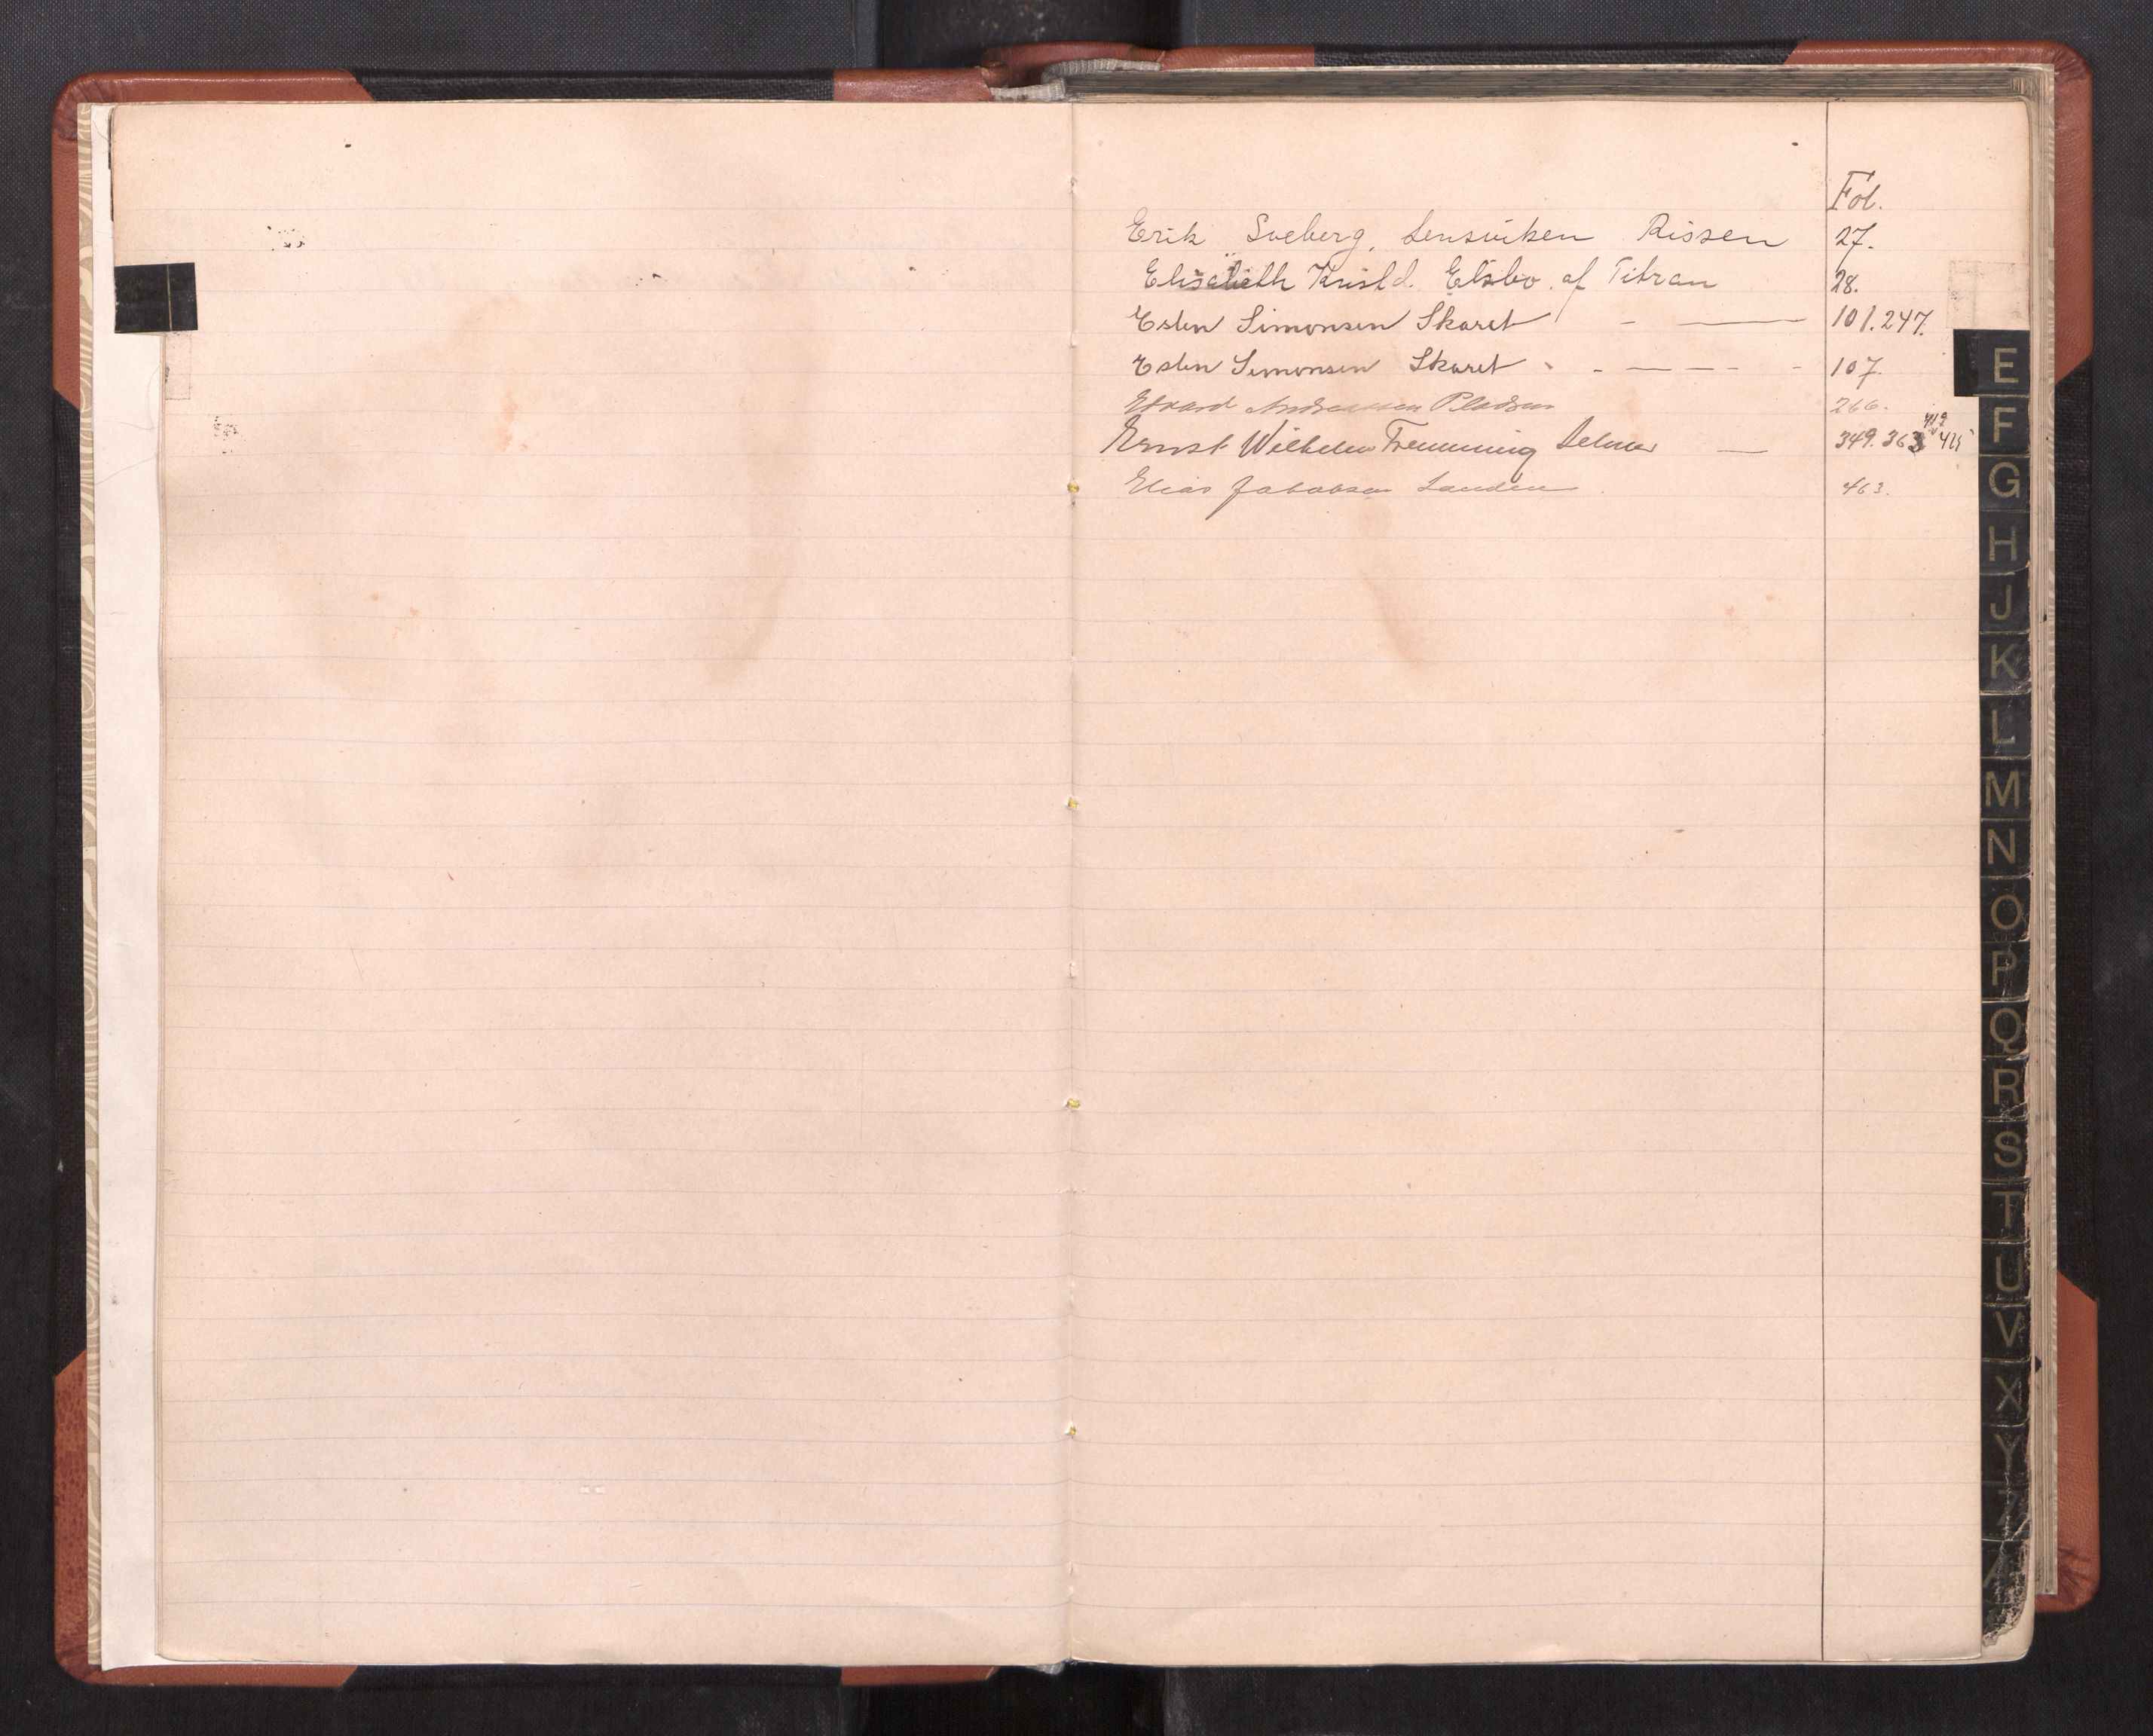 Fol.
Erik Sveberg, Lensviken Rissen 27.
Elisabeth Kristd. Elsbo af Titran 28.
Esten Simonsen Skaret - — 101. 247.
Esten Simonsen Skaret - - — — - - 107.
Edvard Andreassen Pladsen 266.
419
Ernst Wilhelm Flemming Selmer — 349. 363 425
Elias Jakobsen Sanden 463.
E
F
G
H
J
K
L
M
N
O
P
Q
R
S
T
U
V
X
Y
Z